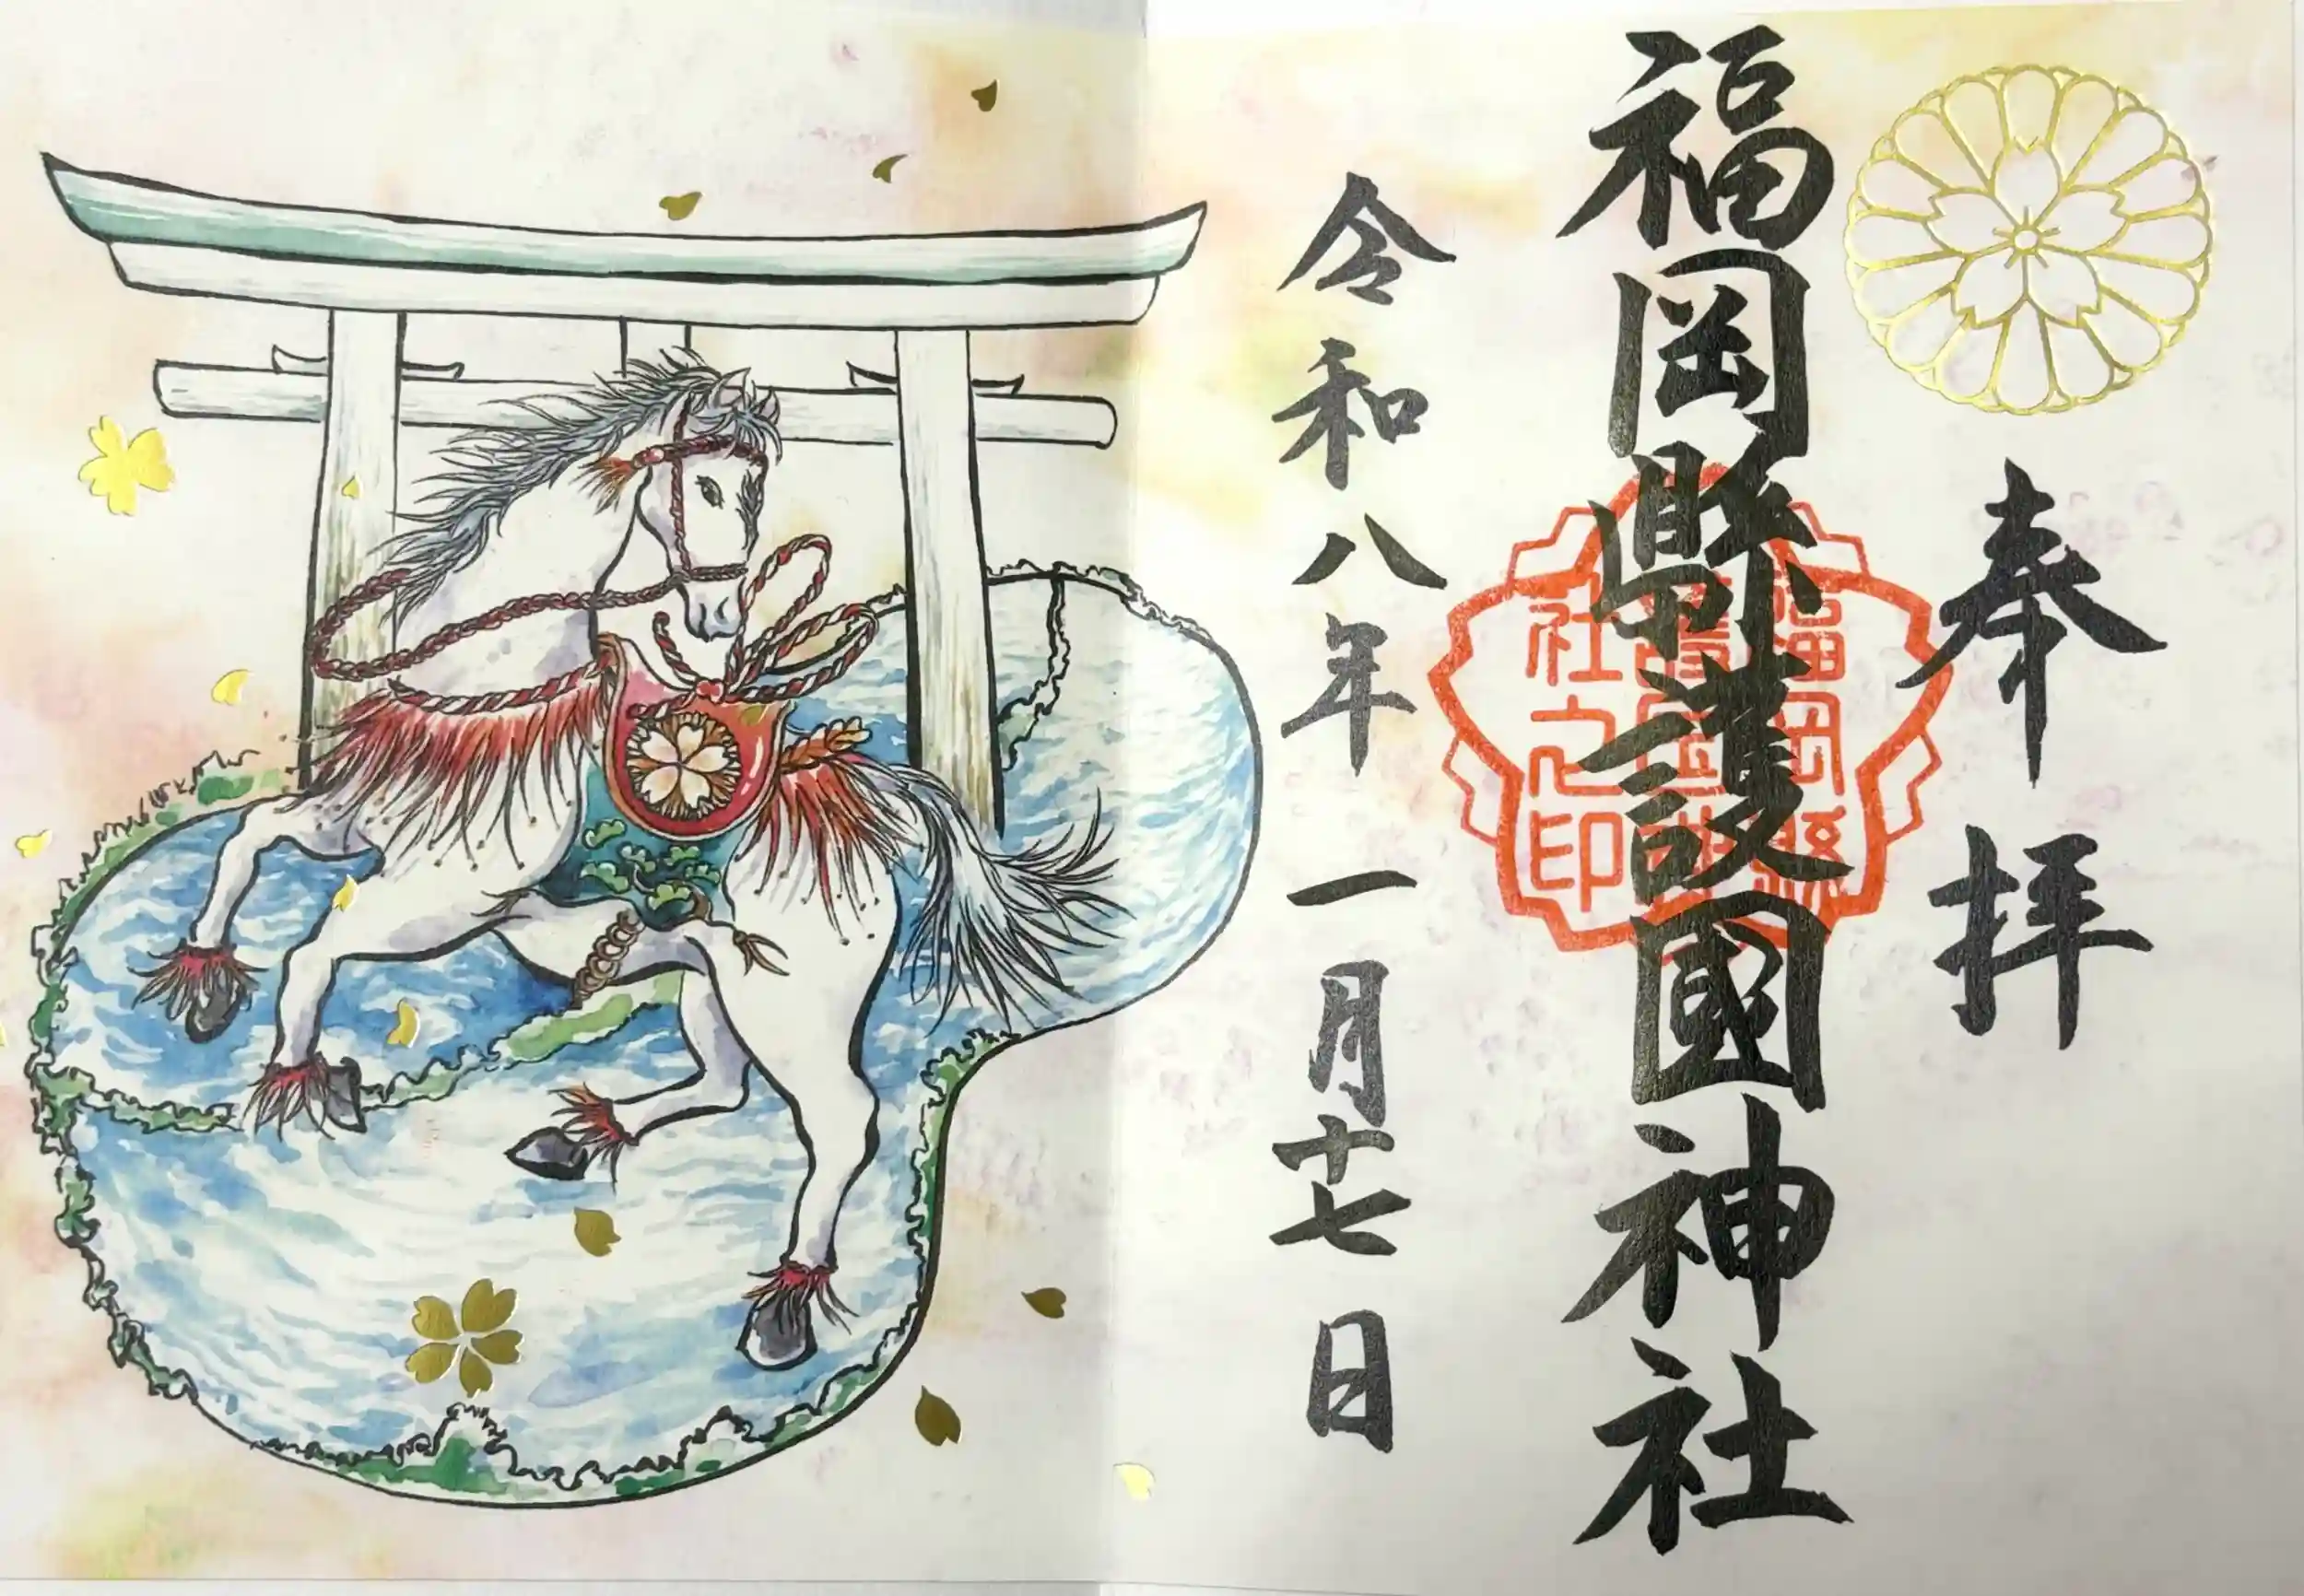 奉拝
福岡縣護國神社
令和八年一月十七日
福岡縣
社之印